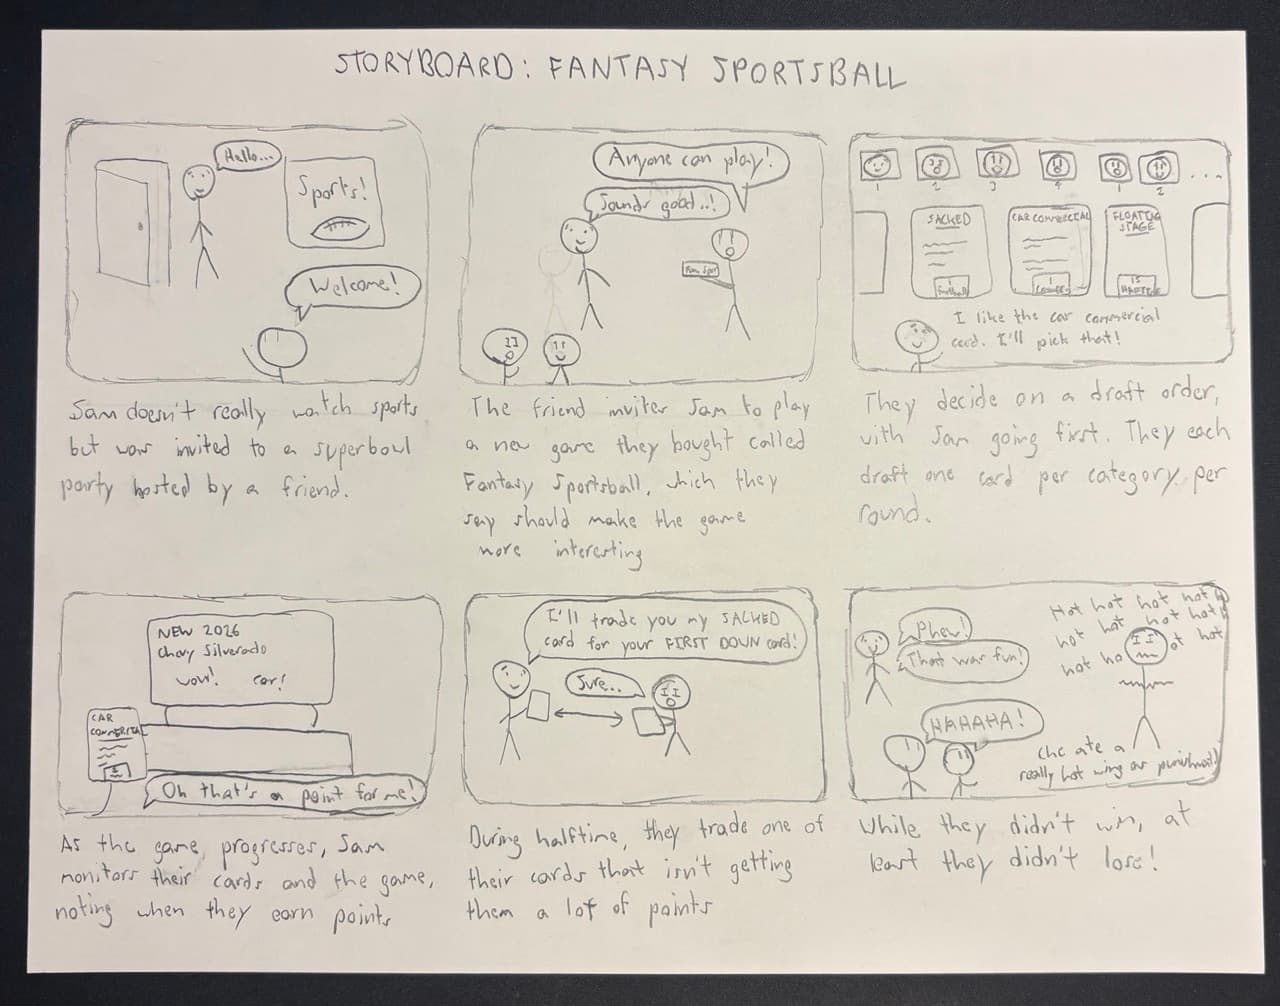 STORYBOARD: FANTASY SPORTSBALL
Hello...
Sports!
Welcome!
Sam doesn't really watch sports
but was invited to a superbowl
party hosted by a friend.
Anyone can play!
Sounds good..!
The friend invites Sam to play
a new game they bought called
Fantasy Sportsball, which they
say should make the game
more interesting
1 2 3 4 1 2 ...
SACKED
1
Football
CAR COMMERCIAL
1
FLOATING
STAGE
15
HALFTIME
I like the car commercial
card. I'll pick that!
They decide on a draft order,
with Sam going first. They each
draft one card per category per
round.
NEW 2026
Chevy Silverado
wow! car!
CAR
COMMERCIAL
Oh that's a point for me!
As the game progresses, Sam
monitors their cards and the game,
noting when they earn points
I'll trade you my SACKED
card for your FIRST DOWN card!
Sure...
During halftime, they trade one of
their cards that isn't getting
them a lot of points
Phew!
That was fun!
HAHAHA!
Hot hot hot hot
hot hot hot hot
hot ho ot hot
ate a
really hot wing as punishment!
While they didn't win, at
least they didn't lose!